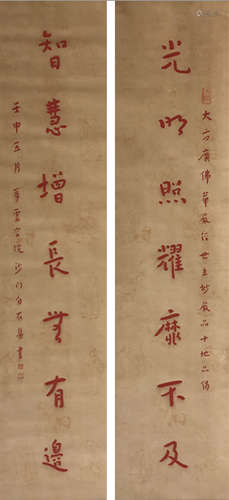 大方廣佛華嚴經世主妙嚴品十地品偈
光明照耀靡不及
智慧增長無有邊
壬申五月 沙門